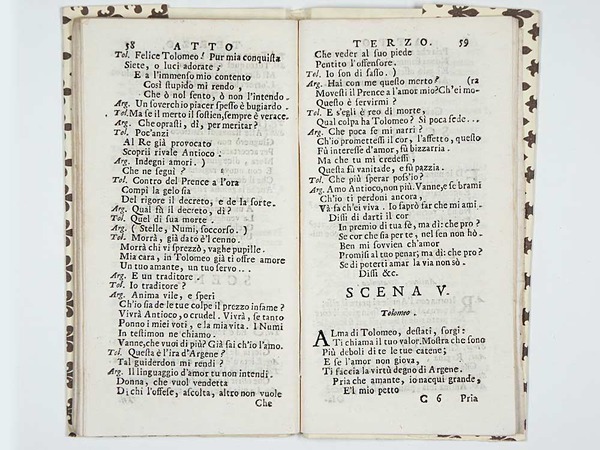 58 ATTO
Tol. Felice Tolomeo! Pur mia conquista
Siete, o luci adorate;
E a l'immenso mio contento
Così stupido mi rendo,
Che ò nol sento, ò non l'intendo.
Arg. Un soverchio piacer spesso è bugiardo.
Tol. Ma se il merto il sostien, sempre è verace.
Arg. Che oprasti, dì, per meritar?
Tol. Poc'anzi
Al Rè già provocato
Scoprii rivale Antioco.
Arg. Indegni amori. )
Che ne seguì?
Tol. Contro del Prence a l'ora
Compì la gelosia
Del rigore il decreto, e de la sorte.
Arg. Qual fù il decreto, dì?
Tol. Quel di sua morte.
Arg. ( Stelle, Numi, soccorso. )
Tol. Morrà, già dato è l'cenno.
Morrà chi vi sprezzò, vaghe pupille.
Mia cara, in Tolomeo già ti offre amore
Un tuo amante, un tuo servo...
Arg. E un traditore.
Tol. Io traditore?
Arg. Anima vile, e speri
Ch'io sia de le tue colpe il prezzo infame?
Vivrà Antioco, o crudel. Vivrà, se tanto
Ponno i miei voti, e la mia vita. I Numi
In testimon ne chiamo.
Vanne, che vuoi di più? Già sai ch'io l'amo.
Tol. Questa è l'ira d'Argene?
Tal guiderdon mi rendi?
Arg. Il linguaggio d'amor tu non intendi.
Donna, che vuol vendetta
Di chi l'offese, ascolta, altro non vuole
Che
TERZO. 59
Che veder al suo piede
Pentito l'offensore.
Tol. Io son di sasso. )
Arg. Hai con me questo merto? (ra
Movesti il Prence a l'amor mio? Ch'ei mo-
Questo è servirmi?
Tol. E s'egli è reo di morte,
Qual colpa ha Tolomeo? Sì poca fede...
Arg. Che poca fe mi narri?
Ch'io promettessi il cor, l'affetto, questo
Fù interesse d'amor, fù bizzarria.
Ma che tu mi credessi,
Questa fù vanitade, e fù pazzia.
Tol. Che più sperar poss'io?
Arg. Amo Antioco, non più. Vanne, e se brami
Ch'io ti perdoni ancora,
Và-fà ch'ei viva. Io saprò far che mi ami.
Dissi di darti il cor
In premio di tua fè, ma dì: che pro?
Se cor che sia per te, nel sen non hò.
Ben mi sovvien ch'amor
Promisi al tuo penar; ma dì: che pro?
Se di poterti amar la via non sò.
Dissi &c.
SCENA V.
Tolomeo.
ALma di Tolomeo, destati, sorgi:
Ti chiama il tuo valor. Mostra che sono
Più deboli di te le tue catene;
E se l'amor non giova,
Ti faccia la virtù degno di Argene.
Pria che amante, io nacqui grande,
E'l mio petto
C 6 Pria